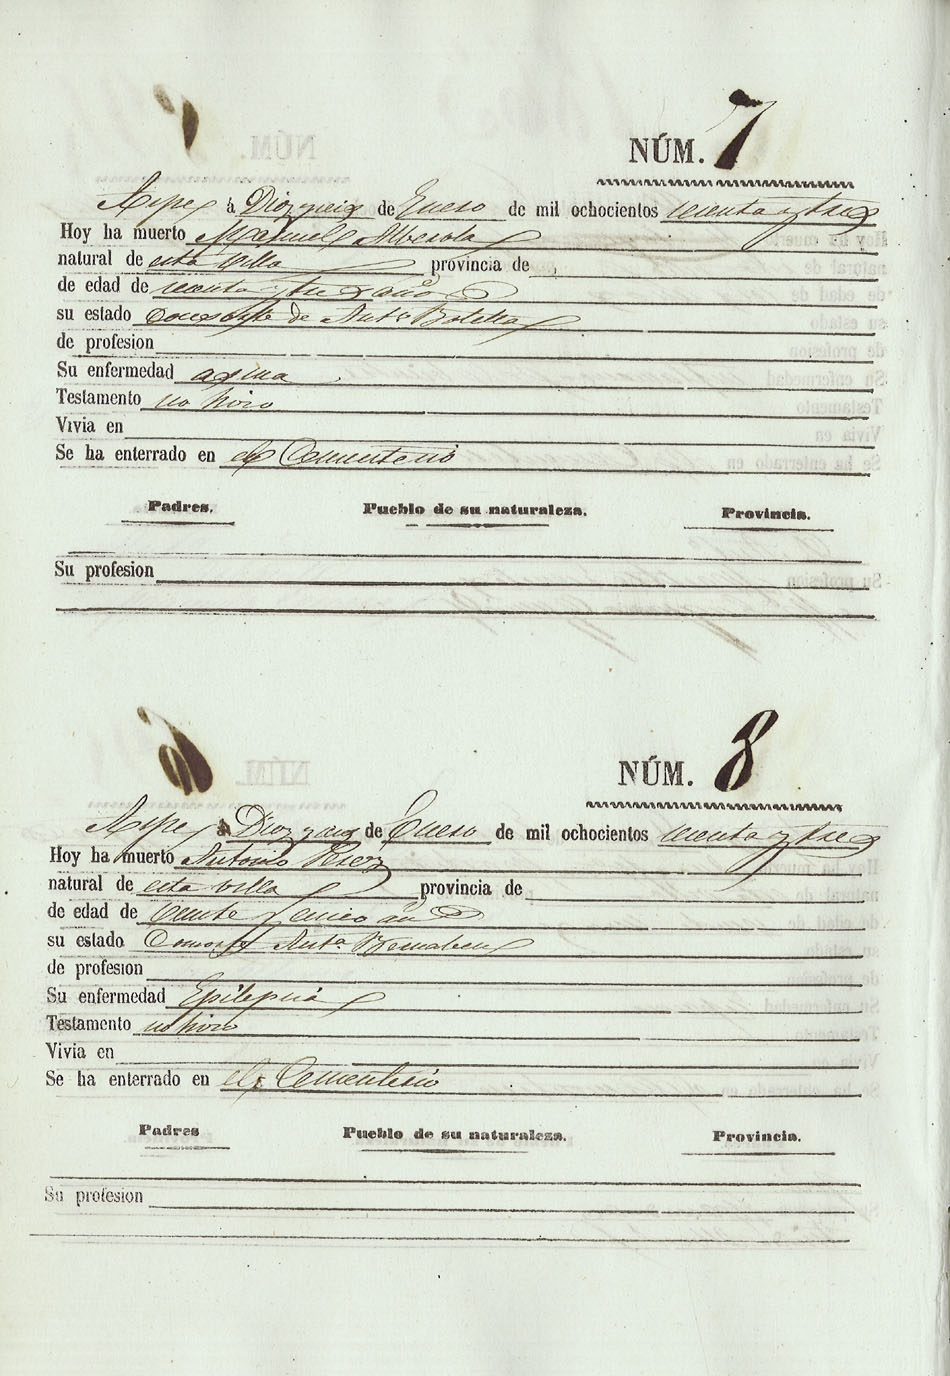 NÚM. 7
Aspe á Diez y seis de Enero de mil ochocientos sesenta y tres
Hoy ha muerto Manuel Alberola
natural de esta villa provincia de
de edad de sesenta y tres años
su estado Consorte de Anta Botella
de profesion
Su enfermedad
Testamento no hizo
Vivia en
Se ha enterrado en el Cementerio
Padres. Pueblo de su naturaleza. Provincia.
Su profesion
NÚM. 8
Aspe á Diez y seis de Enero de mil ochocientos sesenta y tres
Hoy ha muerto Antonio Perez
natural de esta villa provincia de
de edad de veinte y cinco añ
su estado Consorte Anta Bernabeu
de profesion
Su enfermedad Epilepsia
Testamento no hizo
Vivia en
Se ha enterrado en el Cementerio
Padres Pueblo de su naturaleza. Provincia.
Su profesion